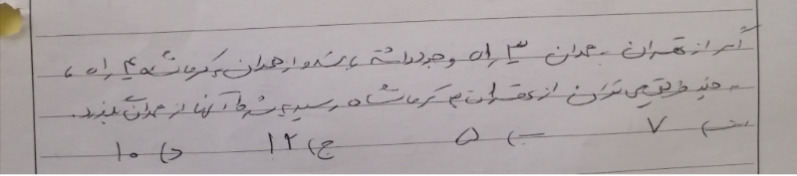 اگر از تهران به همدان ۳ راه وجود داشته باشد و از همدان به کرمانشاه ۴ راه ،
به چند طریق می توان از تهران به کرمانشاه رسید به شرط آنکه از همدان بگذرد.
۷ ب) ۵ ج) ۱۲ د) ۱۰